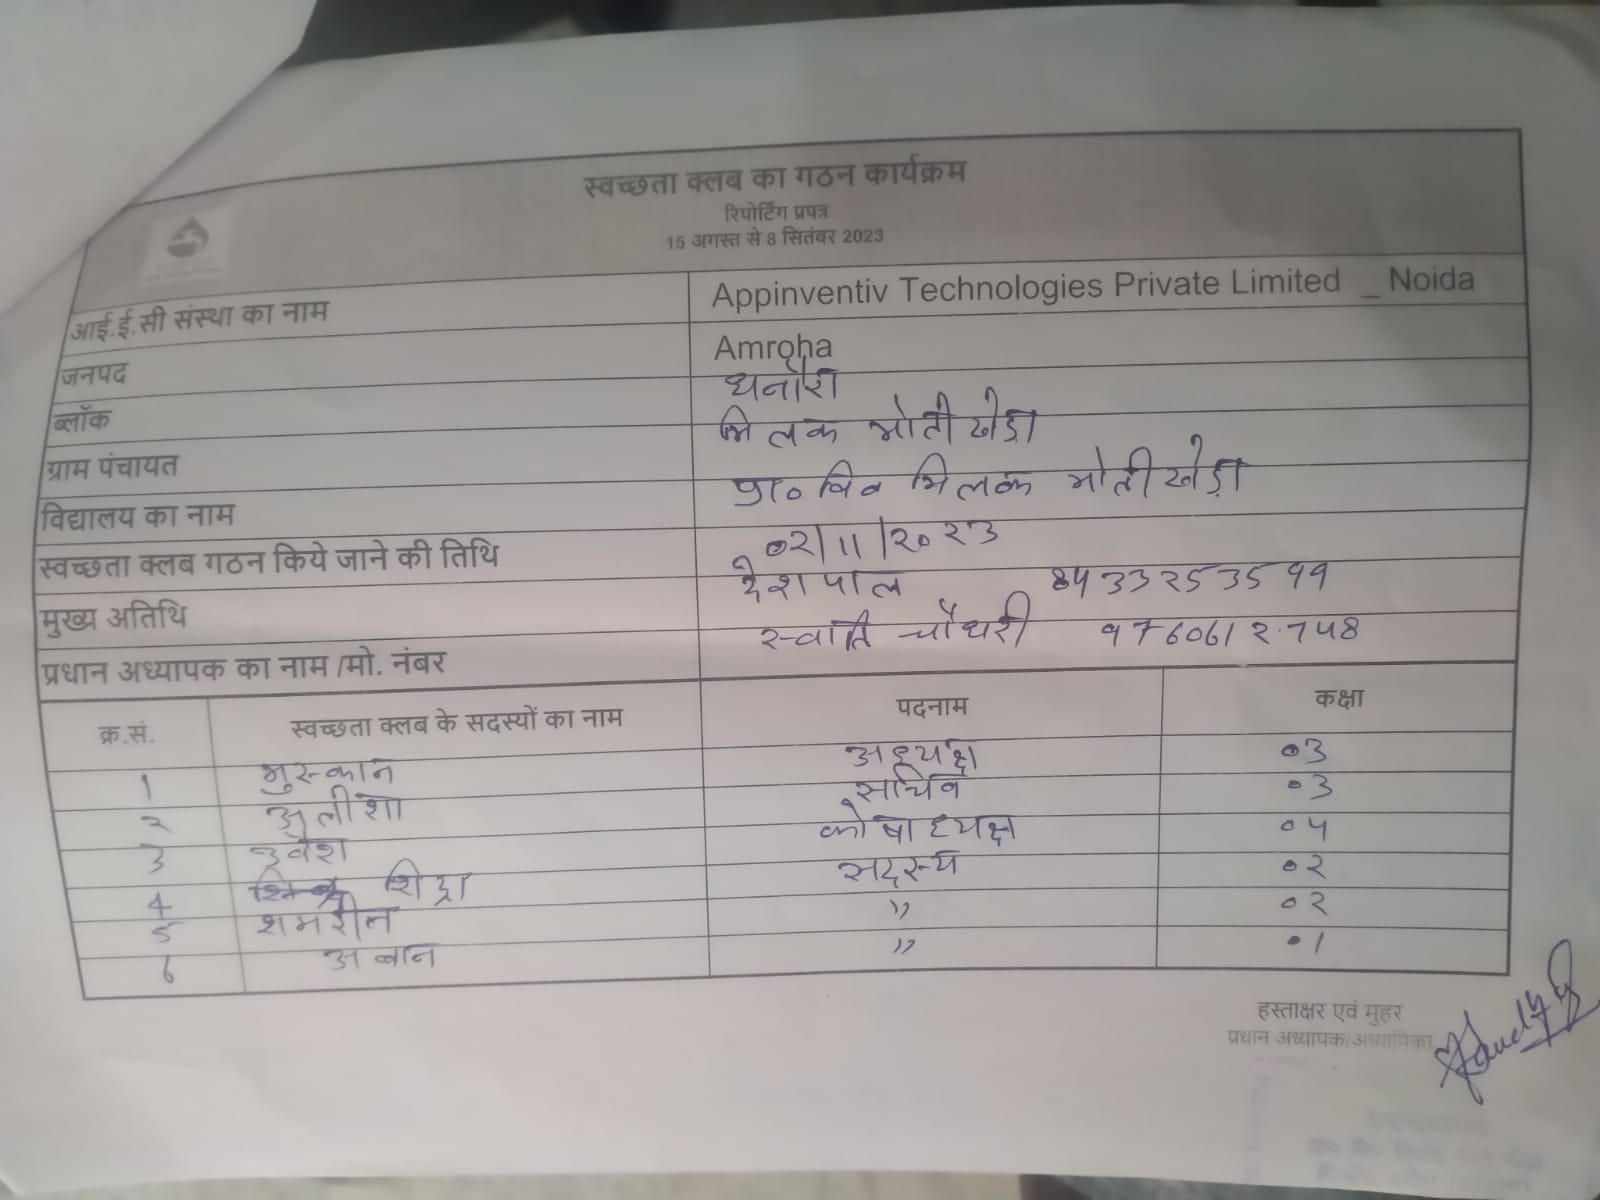 स्वच्छता क्लब का गठन कार्यक्रम
रिपोर्टिंग प्रपत्र
15 अगस्त से 8 सितंबर 2023
आई.ई.सी संस्था का नाम Appinventiv Technologies Private Limited _ Noida
जनपद Amroha
ब्लॉक धनौरा
ग्राम पंचायत मिलक मोती खेड़ा
विद्यालय का नाम प्रा० वि० मिलक मोती खेड़ा
स्वच्छता क्लब गठन किये जाने की तिथि ०२/11/२०२३
मुख्य अतिथि देशपाल
प्रधान अध्यापक का नाम /मो. नंबर स्वाति चौधरी
क्र.सं. स्वच्छता क्लब के सदस्यों का नाम पदनाम कक्षा
1 मुस्कान अध्यक्ष ०3
२ अलीशा सचिव ०3
3 उवैश कोषाध्यक्ष ०५
4 शिद्रा सदस्य ०२
5 शमरीन " ०२
6 अबान " ०1
हस्ताक्षर एवं मुहर
प्रधान अध्यापक/अध्यापिका